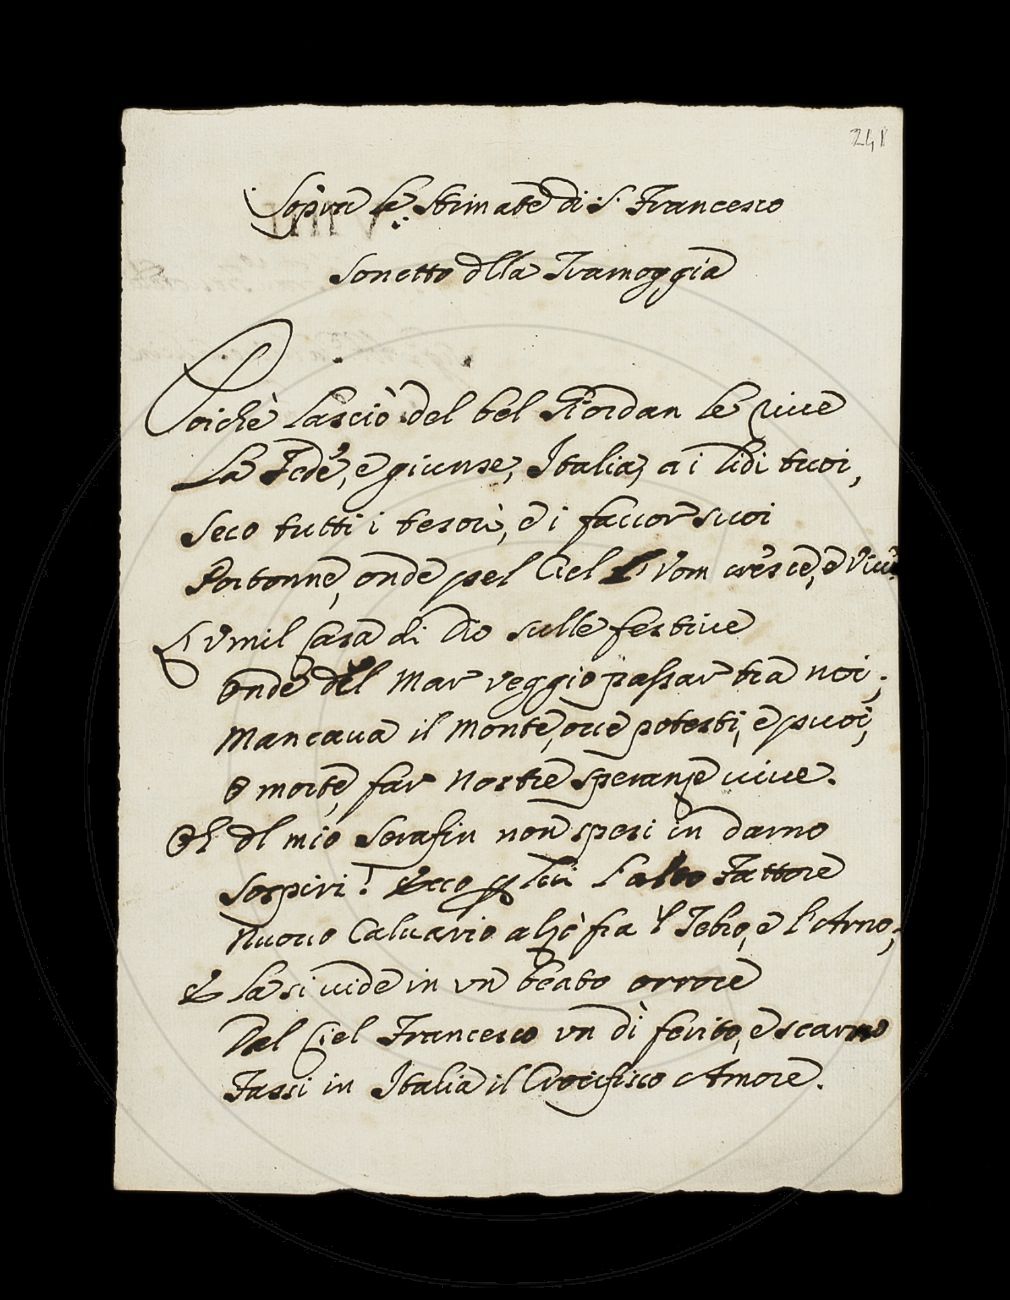 241
Sopra le Stimate di S. Francesco
Sonetto dlla Tramoggia
Poichè lasciò del bel Giordan le rive
La Fede, e giunse, Italia, a i lidi tuoi,
Seco tutti i tesori, e i favor suoi
Portonne, onde pel Ciel l'Vom cresce, e vive.
L'Vmil Casa di Dio sulle festive
Onde del Mar veggio passar tra noi;
Mancava il Monte, ove potesti, e puoi,
O morte, far nostre speranze vive.
Oh dl mio Serafin non sparsi in darno
Sospiri! Ecco per lui l'alto Fattore
Nuovo Calvario alzò fra 'l Tebro, e l'Arno;
E là si vide in vn beato orrore
Dal Ciel Francesco vn dì ferito, e scarno
Fassi in Italia il Crocifisso Amore.